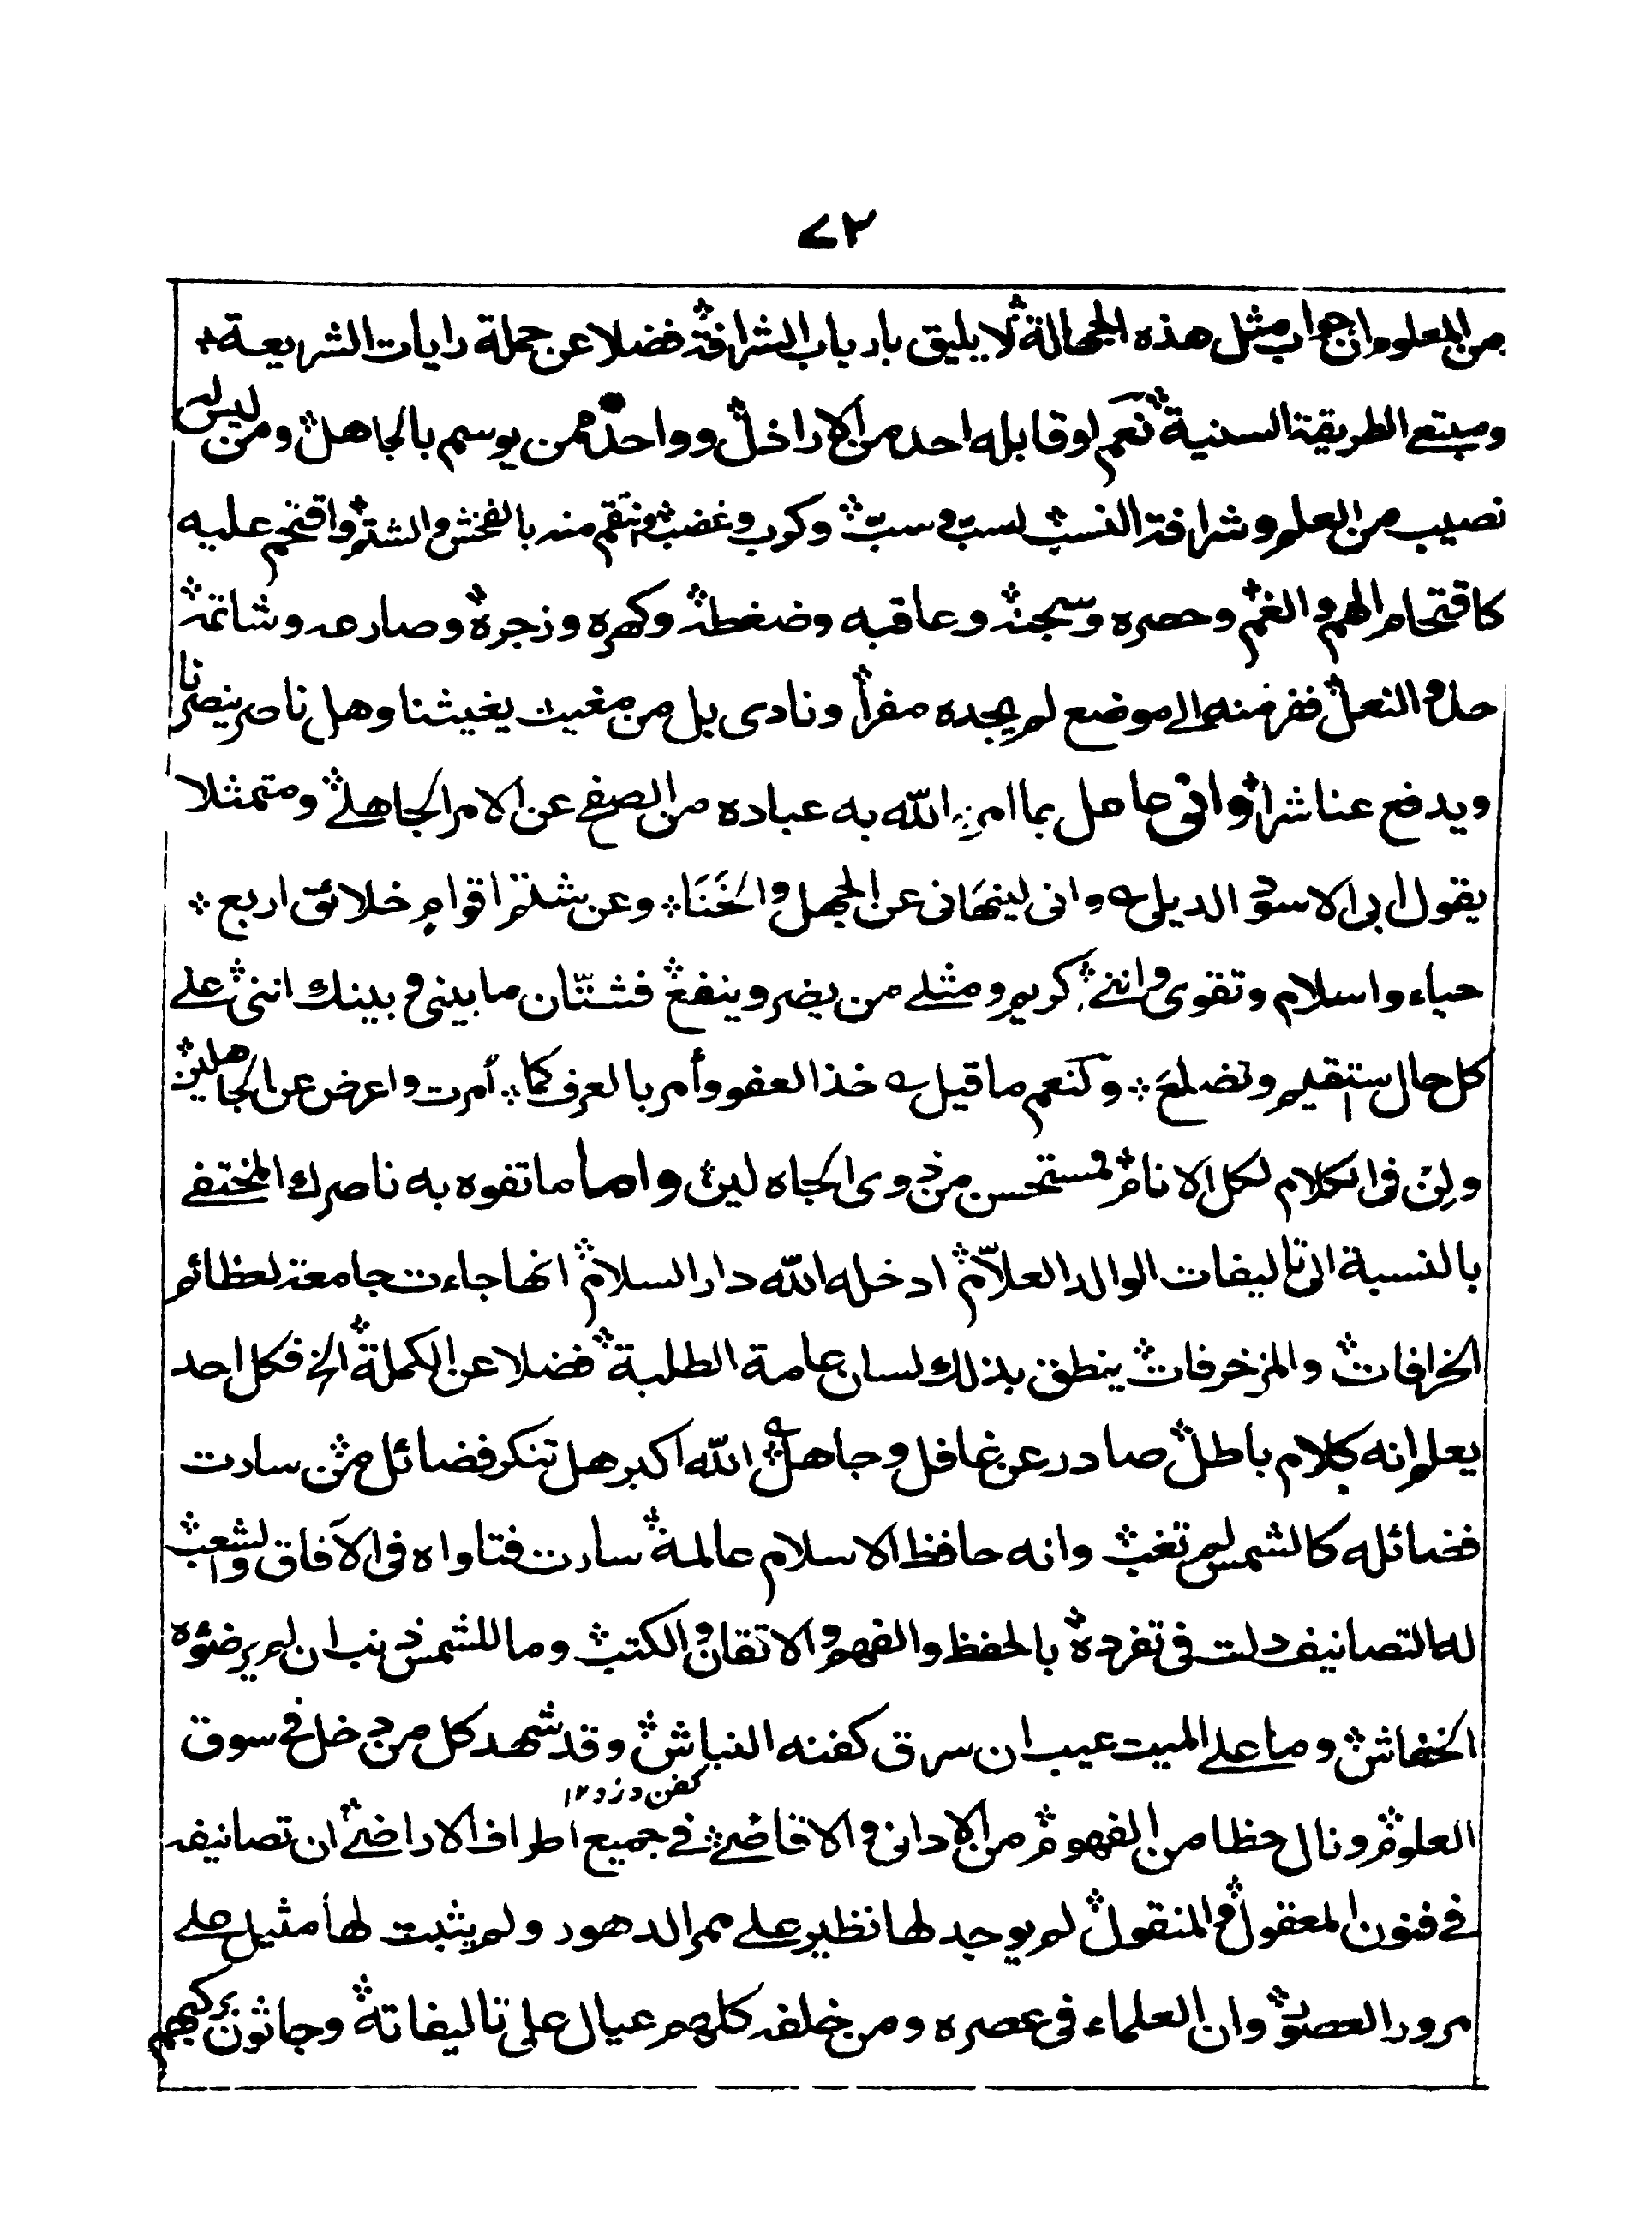 ٧٢
من المعلوم ان جواب مثل هذه الجهالة لا يليق بارباب الشرافة فضلا عن حملة رايات الشريعة
ومبتغى الطريقة السنية نعم لو قابله احد من الاراذل و واحد ممن يوسم بالجاهل ومن ليس له
نصيب من العلم وشرافة النسب لسب وسبّ وكرب وغضب وانتقم منه بالفحش والشتم واقتحم عليه
كاقتحام الهم والغم وحصره وسجنه وعاقبه وضغطه وكهره وزجره وصارعه وشاتمه
حذو النعل ففر منه الى موضع لم يجده مفرا ونادى بل من مغيث يغيثنا وهل ناصر ينصرنا
ويدفع عنا شرا وانى عامل بما امر الله به عباده من الصفح عن الامر الجاهلى ومتمثلا
يقول ابى الاسود الديلى وانى لينهانى عن الجهل والخَنَا وعن شتم اقوام خلائق اربع
حياء واسلام وتقوى واننى كريم ومثلى من يضر وينفع فشتّان ما بينى وبينك اننى على
كل حال استقيم وتضلع وكنعم ما قيل خذ العفو وأمر بالعرف كما أمرت واعرض عن الجاهلين
ولِنْ فى الكلام لكل الانام فمستحسن من ذوى الجاه لين واما ما تفوه به ناصرك المختفى
بالنسبة الى تاليفات الوالد العلّام ادخله الله دار السلام انها جاءت جامعة لعظائم
الخرافات والمزخرفات ينطق بذلك لسان عامة الطلبة فضلا عن الكملة الخ فكل احد
يعلم انه كلام باطل صادر عن غافل وجاهل الله اكبر هل تنكر فضائل من سارت
فضائله كالشمس لم تغب وانه حافظ الاسلام عالمه سارت فتاواه فى الآفاق والشعب
له التصانيف دلت فى تفرده بالحفظ والفهم والاتقان والكتب وما للشمس ذنب ان لم ير ضوؤه
الخفاش وما على الميت عيب ان سرق كفنه النباش وقد شهد كل من دخل فى سوق
كفن دزد ١٢
العلوم ونال حظا من الفهوم من الادانى والاقاضى فى جميع اطراف الاراضى ان تصانيفه
فى فنون المعقول والمنقول لم يوجد لها نظير على ممر الدهور ولم يثبت لها مثيل على
مرور العصور وان العلماء فى عصره ومن خلفه كلهم عيال على تاليفاته وجاثون بركبهم